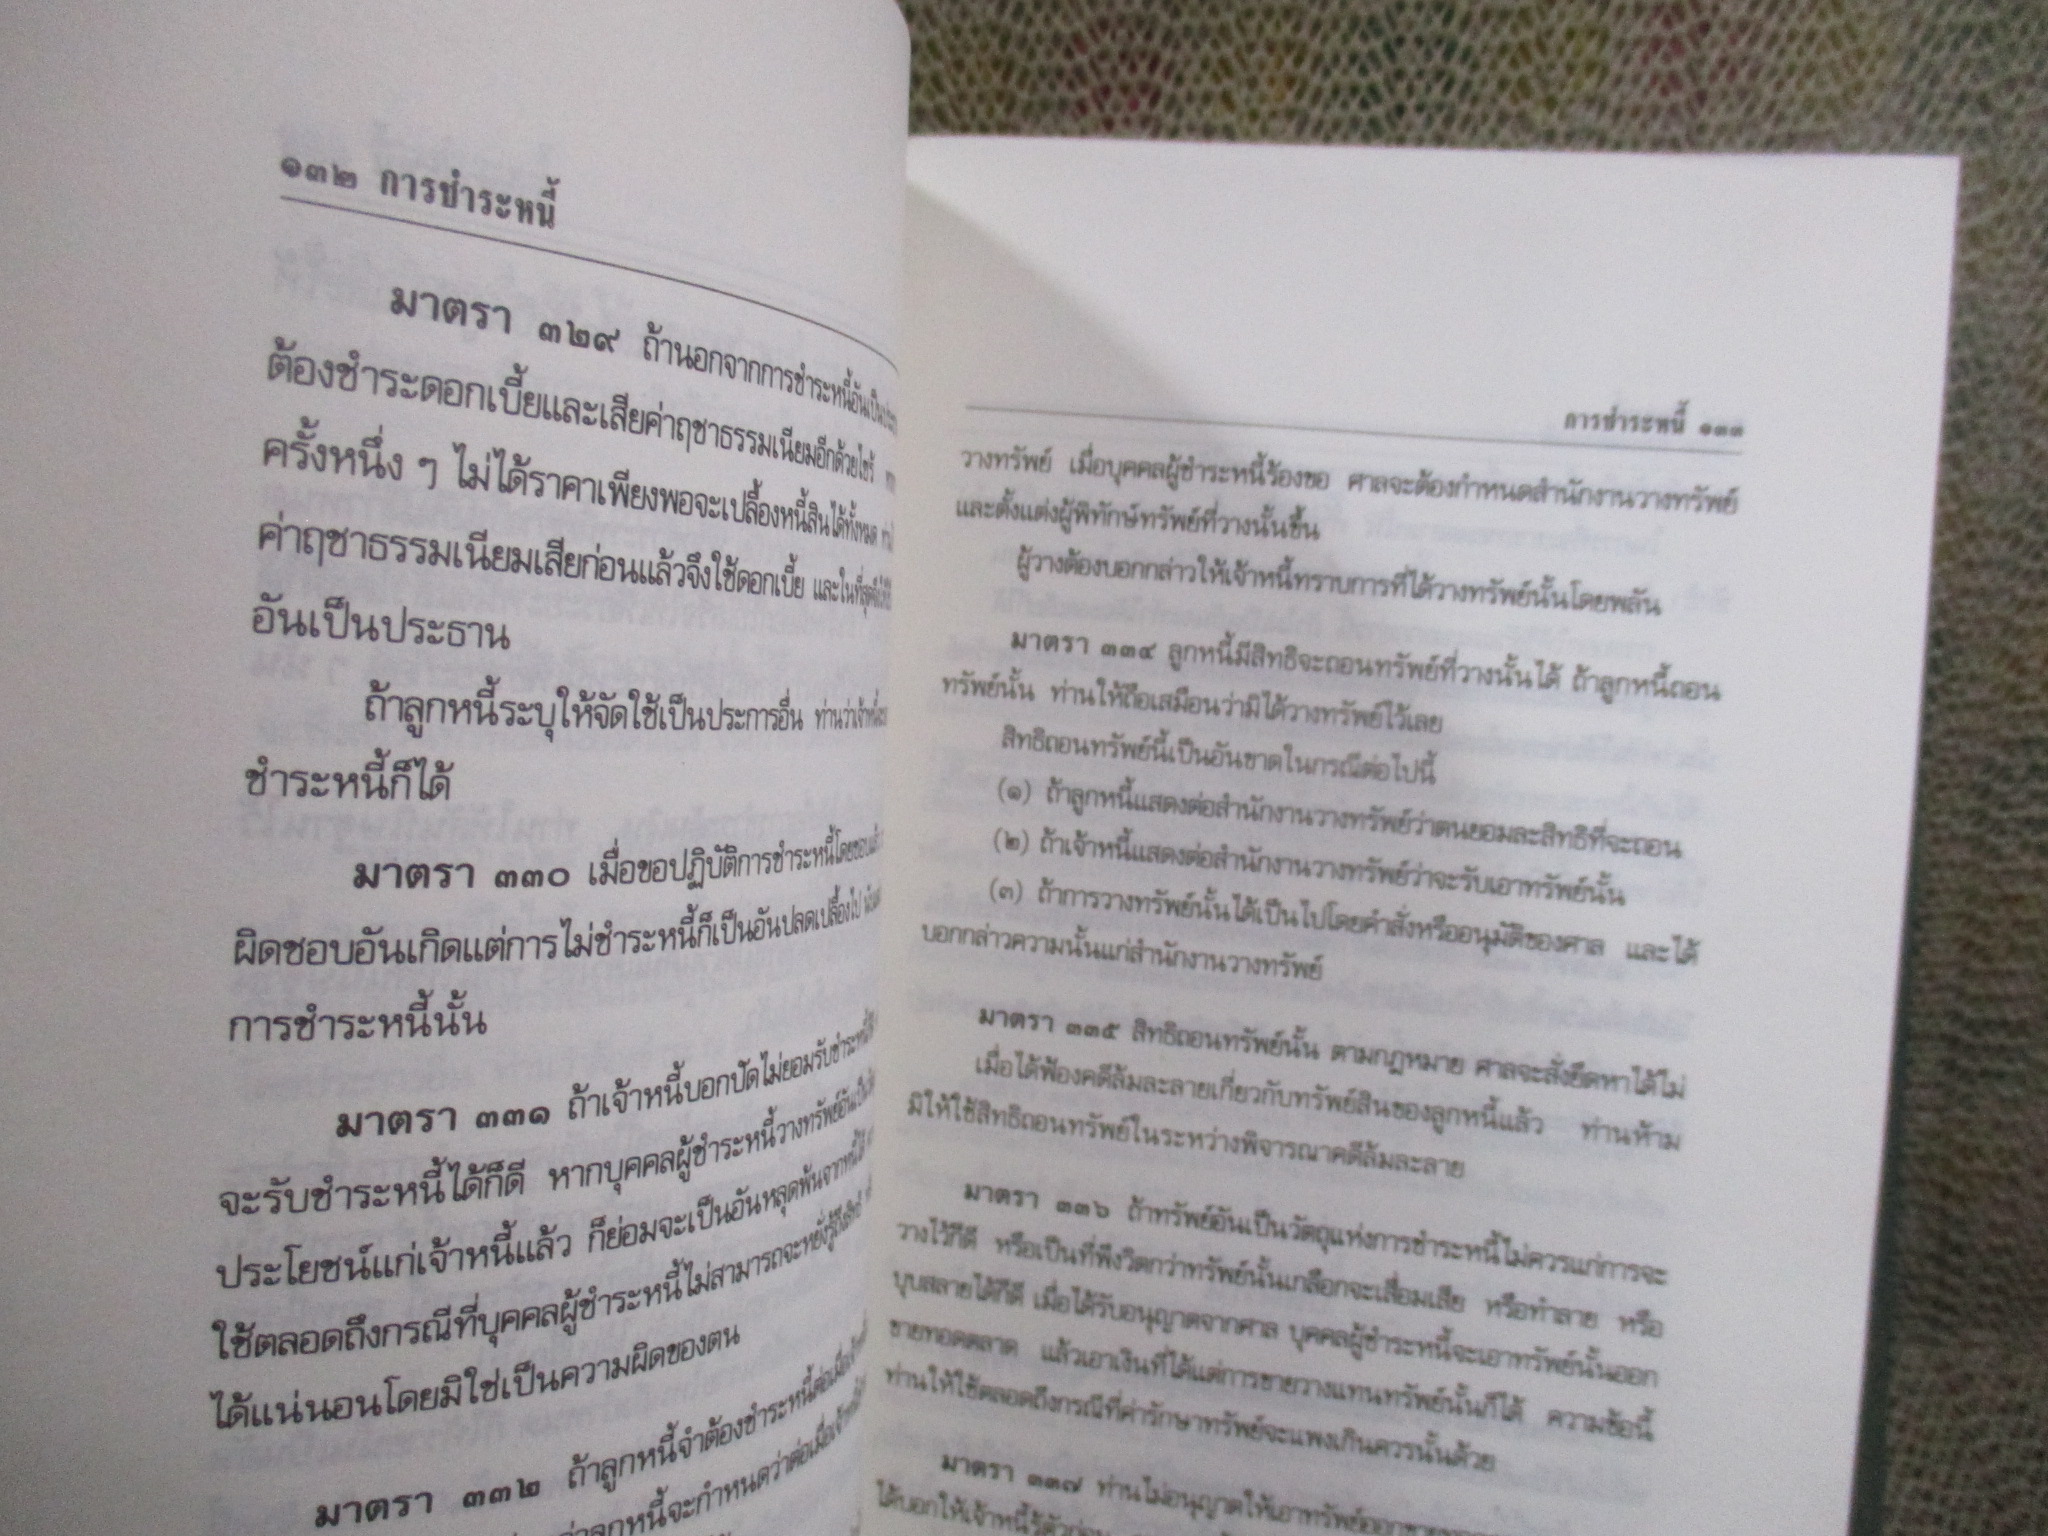 ๑๓๒ การชำระหนี้
มาตรา ๓๒๙ ถ้านอกจากการชำระหนี้อันเป็น
ต้องชำระดอกเบี้ยและเสียค่าฤชาธรรมเนียมอีกด้วยไซร้
ครั้งหนึ่ง ๆ ไม่ได้ราคาเพียงพอจะเปลื้องหนี้สินได้ทั้งหมด
ค่าฤชาธรรมเนียมเสียก่อนแล้วจึงใช้ดอกเบี้ย และในที่สุด
อันเป็นประธาน
ถ้าลูกหนี้ระบุให้จัดใช้เป็นประการอื่น ท่านว่าเจ้าหนี้
ชำระหนี้ก็ได้
มาตรา ๓๓๐ เมื่อขอปฏิบัติการชำระหนี้โดยชอบแล้ว
ผิดชอบอันเกิดแต่การไม่ชำระหนี้ก็เป็นอันปลดเปลื้องไป
การชำระหนี้นั้น
มาตรา ๓๓๑ ถ้าเจ้าหนี้บอกปัดไม่ยอมรับชำระหนี้
จะรับชำระหนี้ได้ก็ดี หากบุคคลผู้ชำระหนี้วางทรัพย์อันเป็น
ประโยชน์แก่เจ้าหนี้แล้ว ก็ย่อมจะเป็นอันหลุดพ้นจากหนี้ได้
ใช้ตลอดถึงกรณีที่บุคคลผู้ชำระหนี้ไม่สามารถจะหยั่งรู้ถึงสิทธิ
ได้แน่นอนโดยมิใช่เป็นความผิดของตน
มาตรา ๓๓๒ ถ้าลูกหนี้จำต้องชำระหนี้ต่อเมื่อ
ลูกหนี้จะกำหนดว่าต่อเมื่อเจ้าหนี้
การชำระหนี้ ๑๓๓
วางทรัพย์ เมื่อบุคคลผู้ชำระหนี้ร้องขอ ศาลจะต้องกำหนดสำนักงานวางทรัพย์
และตั้งแต่งผู้พิทักษ์ทรัพย์ที่วางนั้นขึ้น
ผู้วางต้องบอกกล่าวให้เจ้าหนี้ทราบการที่ได้วางทรัพย์นั้นโดยพลัน
มาตรา ๓๓๔ ลูกหนี้มีสิทธิจะถอนทรัพย์ที่วางนั้นได้ ถ้าลูกหนี้ถอน
ทรัพย์นั้น ท่านให้ถือเสมือนว่ามิได้วางทรัพย์ไว้เลย
สิทธิถอนทรัพย์นี้เป็นอันขาดในกรณีต่อไปนี้
(๑) ถ้าลูกหนี้แสดงต่อสำนักงานวางทรัพย์ว่าตนยอมละสิทธิที่จะถอน
(๒) ถ้าเจ้าหนี้แสดงต่อสำนักงานวางทรัพย์ว่าจะรับเอาทรัพย์นั้น
(๓) ถ้าการวางทรัพย์นั้นได้เป็นไปโดยคำสั่งหรืออนุมัติของศาล และได้
บอกกล่าวความนั้นแก่สำนักงานวางทรัพย์
มาตรา ๓๓๕ สิทธิถอนทรัพย์นั้น ตามกฎหมาย ศาลจะสั่งยึดหาได้ไม่
เมื่อได้ฟ้องคดีล้มละลายเกี่ยวกับทรัพย์สินของลูกหนี้แล้ว ท่านห้าม
มิให้ใช้สิทธิถอนทรัพย์ในระหว่างพิจารณาคดีล้มละลาย
มาตรา ๓๓๖ ถ้าทรัพย์อันเป็นวัตถุแห่งการชำระหนี้ไม่ควรแก่การจะ
วางไว้ก็ดี หรือเป็นที่พึงวิตกว่าทรัพย์นั้นเกลือกจะเสื่อมเสีย หรือทำลาย หรือ
บุบสลายได้ก็ดี เมื่อได้รับอนุญาตจากศาล บุคคลผู้ชำระหนี้จะเอาทรัพย์นั้นออก
ขายทอดตลาด แล้วเอาเงินที่ได้แต่การขายวางแทนทรัพย์นั้นก็ได้ ความข้อนี้
ท่านให้ใช้ตลอดถึงกรณีที่ค่ารักษาทรัพย์จะแพงเกินควรนั้นด้วย
มาตรา ๓๓๗ ท่านไม่อนุญาตให้เอาทรัพย์ออกขาย
ได้บอกให้เจ้าหนี้รู้ตัวก่อน